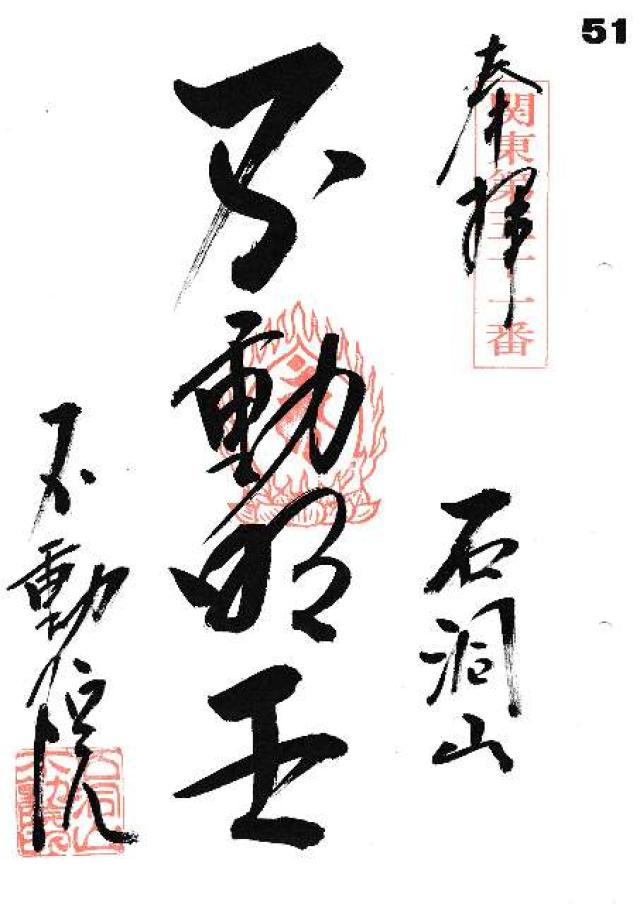 51
奉拝
関東第五十一番
石洞山
不動明王
不動院
石洞山
不動院